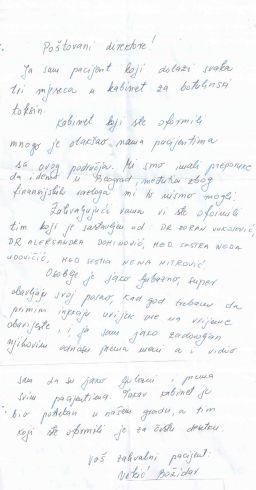 Poštovani direktore!
Ja sam pacijent koji dolazi svaka
tri mjeseca u kabinet za botulinski
toksin.
Kabinet koji ste oformili
mnogo je olakšao nama pacijentima
sa ovog područja. Mi smo imali preporuke
da idemo u Beograd međutim zbog
finansijskih razloga mi to nismo mogli.
Zahvaljujući vama vi ste oformili
tim koji je sastavljen od DR ZORAN VUKOJEVIĆ,
DR ALEKSANDRA DOMINOVIĆ, MED SESTRA NADA
UDOVIČIĆ, MED SESTRA NEVENA MITROVIĆ
Osoblje je jako ljubazno, super
obavljaju svoj posao, kad god trebamo da
primim injekciju uvijek me na vrijeme
obavijeste i ja sam jako zadovoljan
njihovim odnosom prema meni a i vidio
sam da su jako ljubazni i prema
svim pacijentima. Takav kabinet je
bio potreban u našem gradu, a tim
koji ste oformili je za čistu desetku.
Vaš zahvalni pacijent:
Božidar